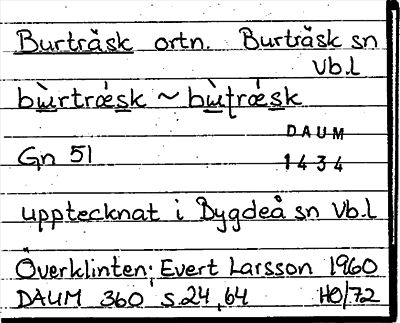 Burträsk ortn. Burträsk sn
Vb.l
bẁrtrǿsk ~ bẁʈrǿsk
DAUM
Gn 51
1434
upptecknat i Bygdeå sn Vb.l
Överklinten; Evert Larsson 1960
DAUM 360, s. 24, 64 HO/72